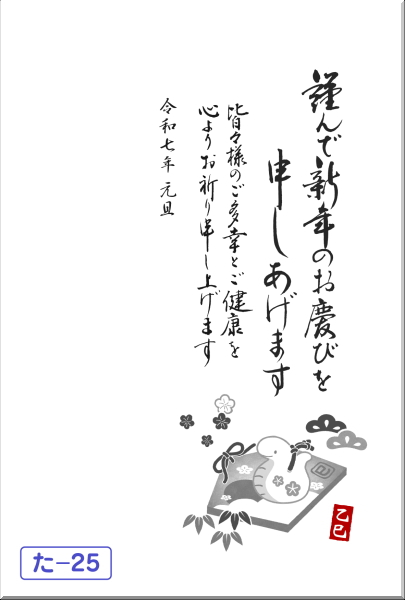 謹んで新年のお慶びを
申しあげます
皆々様のご多幸とご健康を
心よりお祈り申し上げます
令和七年 元旦
乙巳
た-25